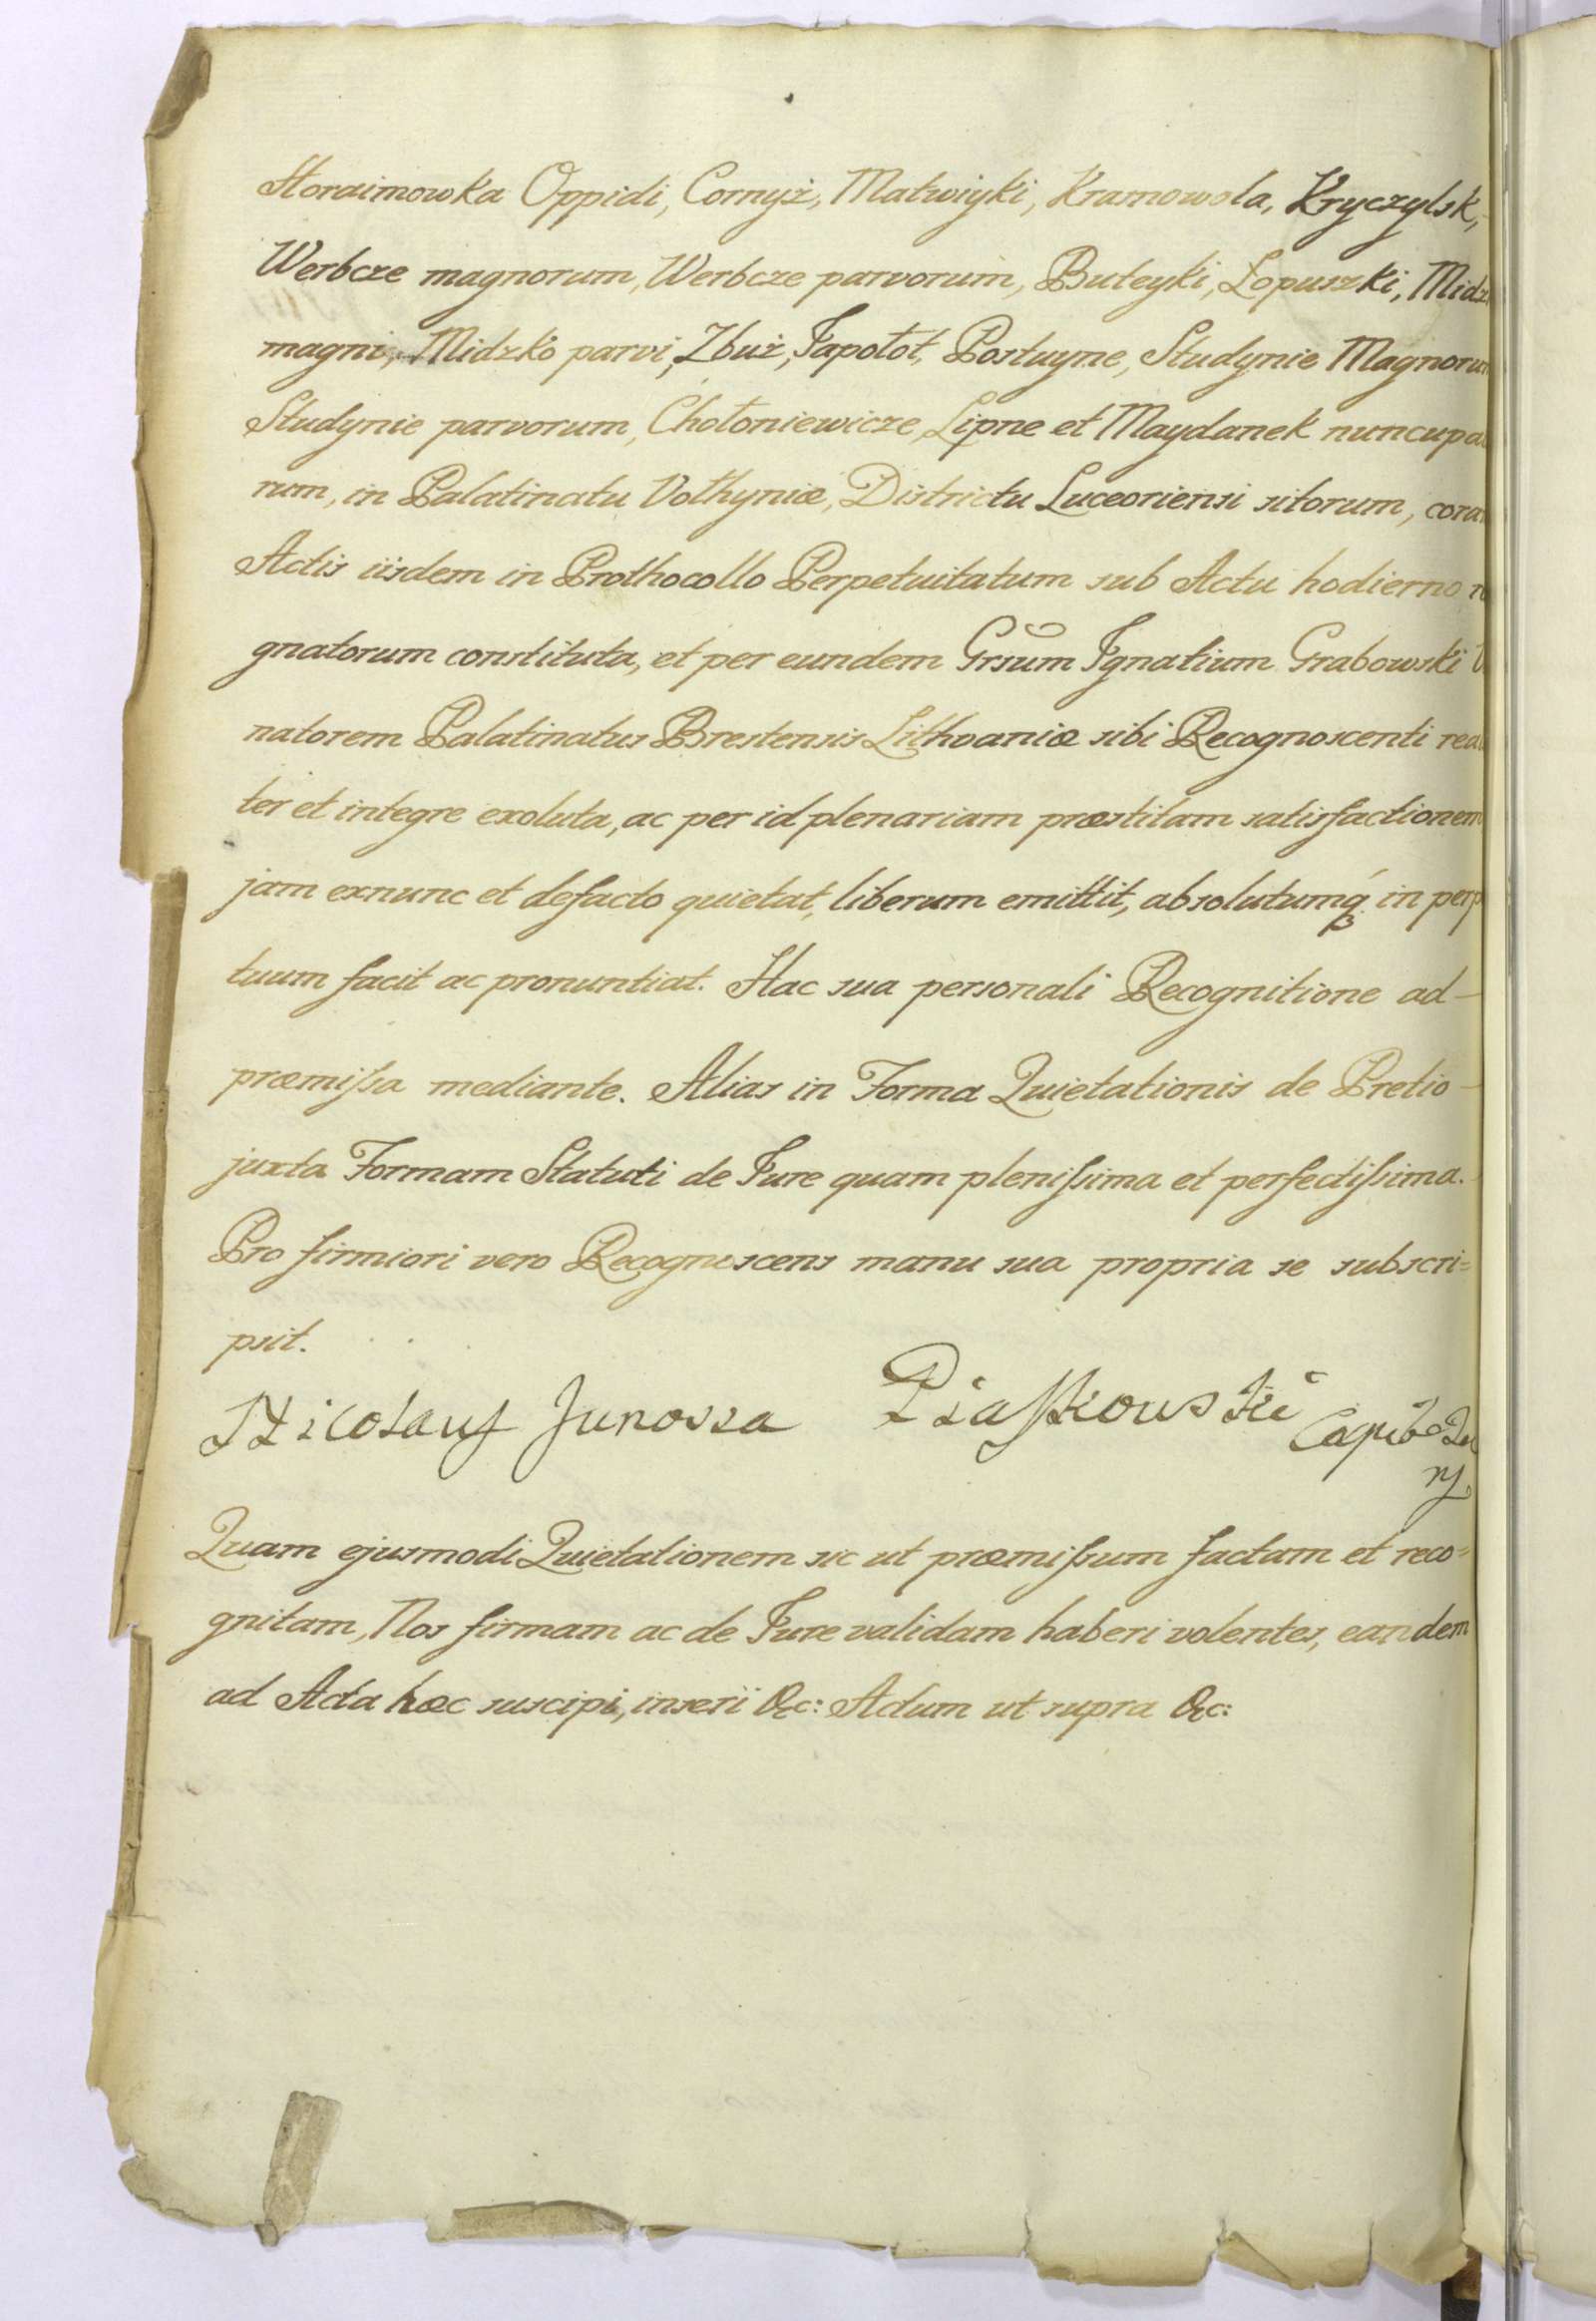 Horaimowka Oppidi, Cornyż, Matwiyki, Kramowola, Kryczylsk,
Werbcze magnorum, Werbcze parvorum, Buteyki, Łopuszki, Midz
magni, Midzko parvi, Zbuż, Japołot, Postuyne, Studynie Magnoru
Studynie parvorum, Chołoniewicze, Lipne et Maydanek nuncupa
rum, in Palatinatu Volhyniæ, Districtu Luceoriensi sitorum, cora
Actis iisdem in Prothocollo Perpetuitatum sub Actu hodierno
gnatorum constituta, et per eundem Grsum Ignatium Grabowski
natorem Palatinatus Brestensis Lithvaniæ sibi Recognoscenti rea
ter et integre exoluta, ac per id plenariam præstitam satisfactionem
jam exnunc et defacto quietat, liberum emittit, absolutumq́ in perp
tuum facit ac pronuntiat. Hac sua personali Recognitione ad-
præmissa mediante. Alias in Forma Quietationis de Pretio-
juxta Formam Statuti de Jure quam plenissima et perfectissima.
Pro firmiori vero Recognoscens manu sua propria se subscri=
psit.
Nicolaus Junossa Piaskowski
Quam ejusmodi Quietationem sic ut præmissum factam et reco=
gnitam, Nos firmam ac de Jure validam haberi volentes, eandem
ad Acta hæc suscipi, inseri &c: Actum ut supra &c: